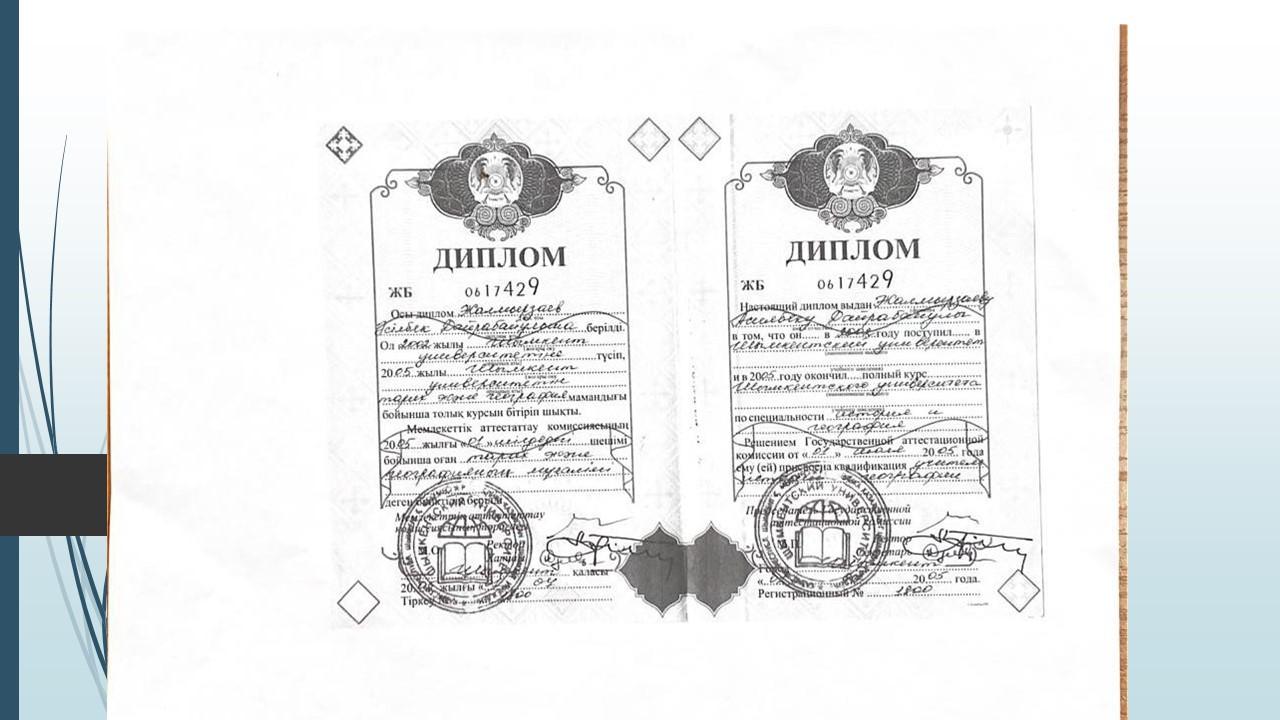 ДИПЛОМ
ЖБ 0617429
Осы диплом Жалмырзаев
Дайрабайұлына берілді.
Ол жылы Шымкент
университетіне түсіп,
2005 жылы Шымкент
университетін
тарих және география мамандығы
бойынша толық курсын бітіріп шықты.
Мемлекеттік аттестаттау комиссиясының
2005 жылғы «01» шілдедегі шешімі
бойынша оған тарих және
географияның мұғалімі
деген біліктілік берілді
Мемлекеттік аттестаттау
Ректор
қаласы
жылғы «
Тіркеу № 1800
ДИПЛОМ
ЖБ 0617429
Настоящий диплом выдан Жалмырзаеву
Дайрабайұлы
в том, что он в году поступил в
Шымкентский университет
и в 2005 году окончил полный курс
Шымкентского университета
по специальности история и
география
Решением Государственной аттестационной
комиссии от «01» июля 2005 года
ему (ей) присвоена квалификация учитель
истории и географии
Председатель Государственной
аттестационной комиссии
Ректор
Секретарь
Город Шымкент
2005 года.
Регистрационный № 1800